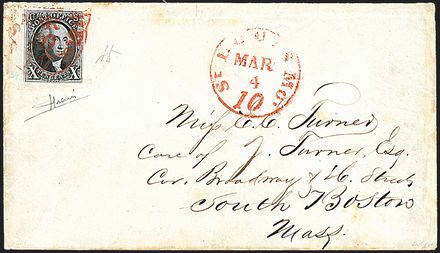 POST OFFICE
X X
ST. LOUIS Mo.
MAR
4
10
Miss C. C. Turner
Care of J. Turner, Esq.
Cor. Broadway & H. Streets
South Boston
Mass.